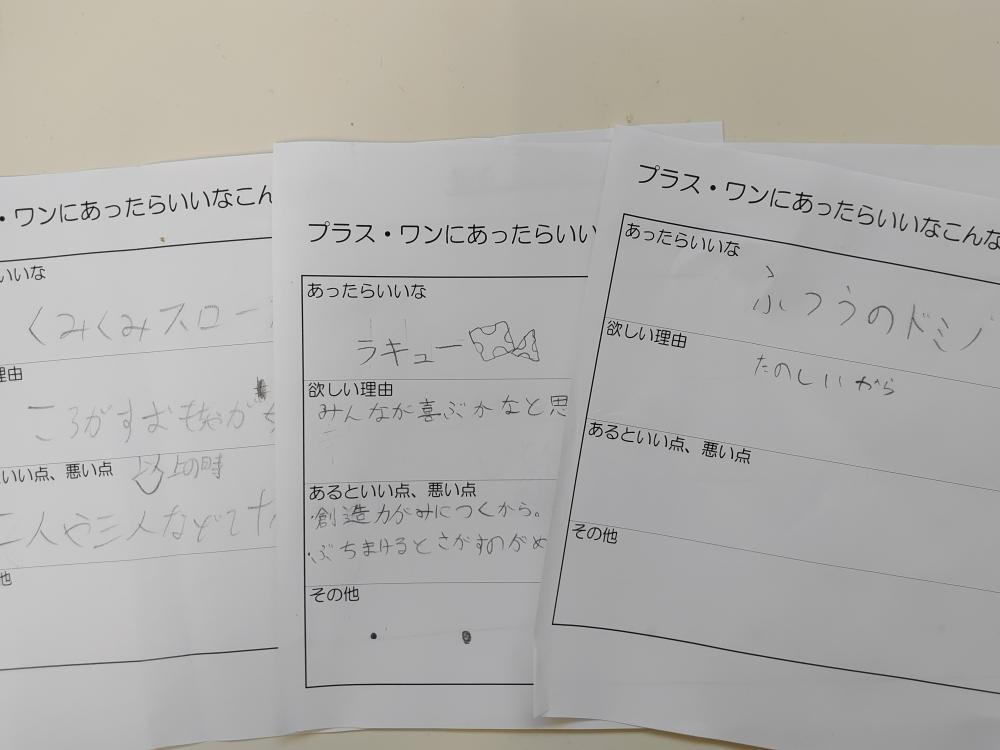 ・ワンにあったらいいなこん
いいな
くみくみスロー
理由
ころがすおもちゃが
いい点、悪い点
以上の時
二人や三人など
他
プラス・ワンにあったらいい
あったらいいな
ラキュー
欲しい理由
みんなが喜ぶかなと思
あるといい点、悪い点
・創造力がみにつくから。
・ぶちまけるとさがすのがめ
その他
プラス・ワンにあったらいいなこんな
あったらいいな
ふつうのドミノ
欲しい理由
たのしいから
あるといい点、悪い点
その他